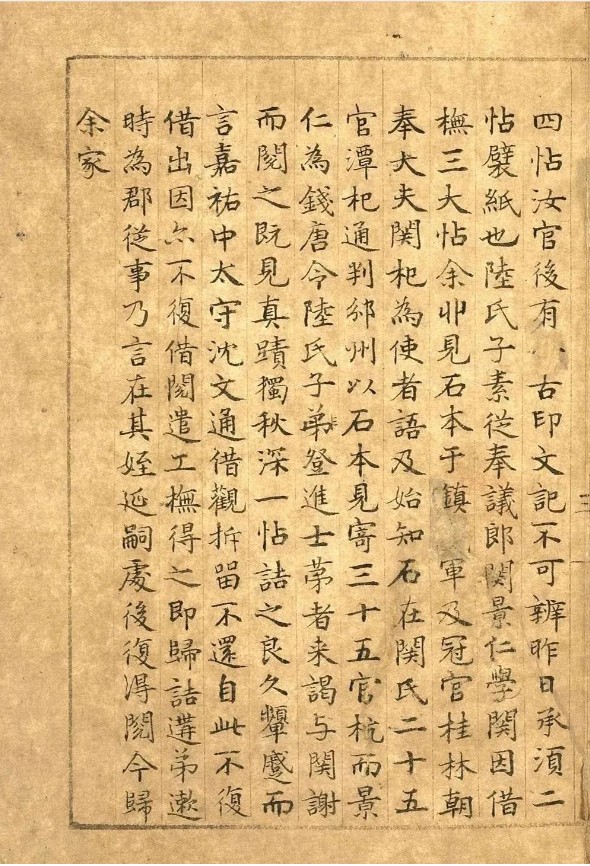 四帖汝官後有古印文記不可辨昨日承湏二
帖襞紙也陸氏子素從奉議郎関景仁學関因借
橅三大帖余丱見石本于鎮軍及冠官桂林朝
奉大夫関杞為使者語及始知石在関氏二十五
官潭杞通判邠州以石本見寄三十五官杭而景
仁為錢唐令陸氏子弟登進士第者来謁与関謝
而閱之既見真蹟獨秋深一帖詰之良久顰蹙而
言嘉祐中太守沈文通借觀拆留不還自此不復
借出因亦不復借閱遣工橅得之即歸詰遘弟遬
時為郡從事乃言在其姪延嗣處後復得閱今歸
余家